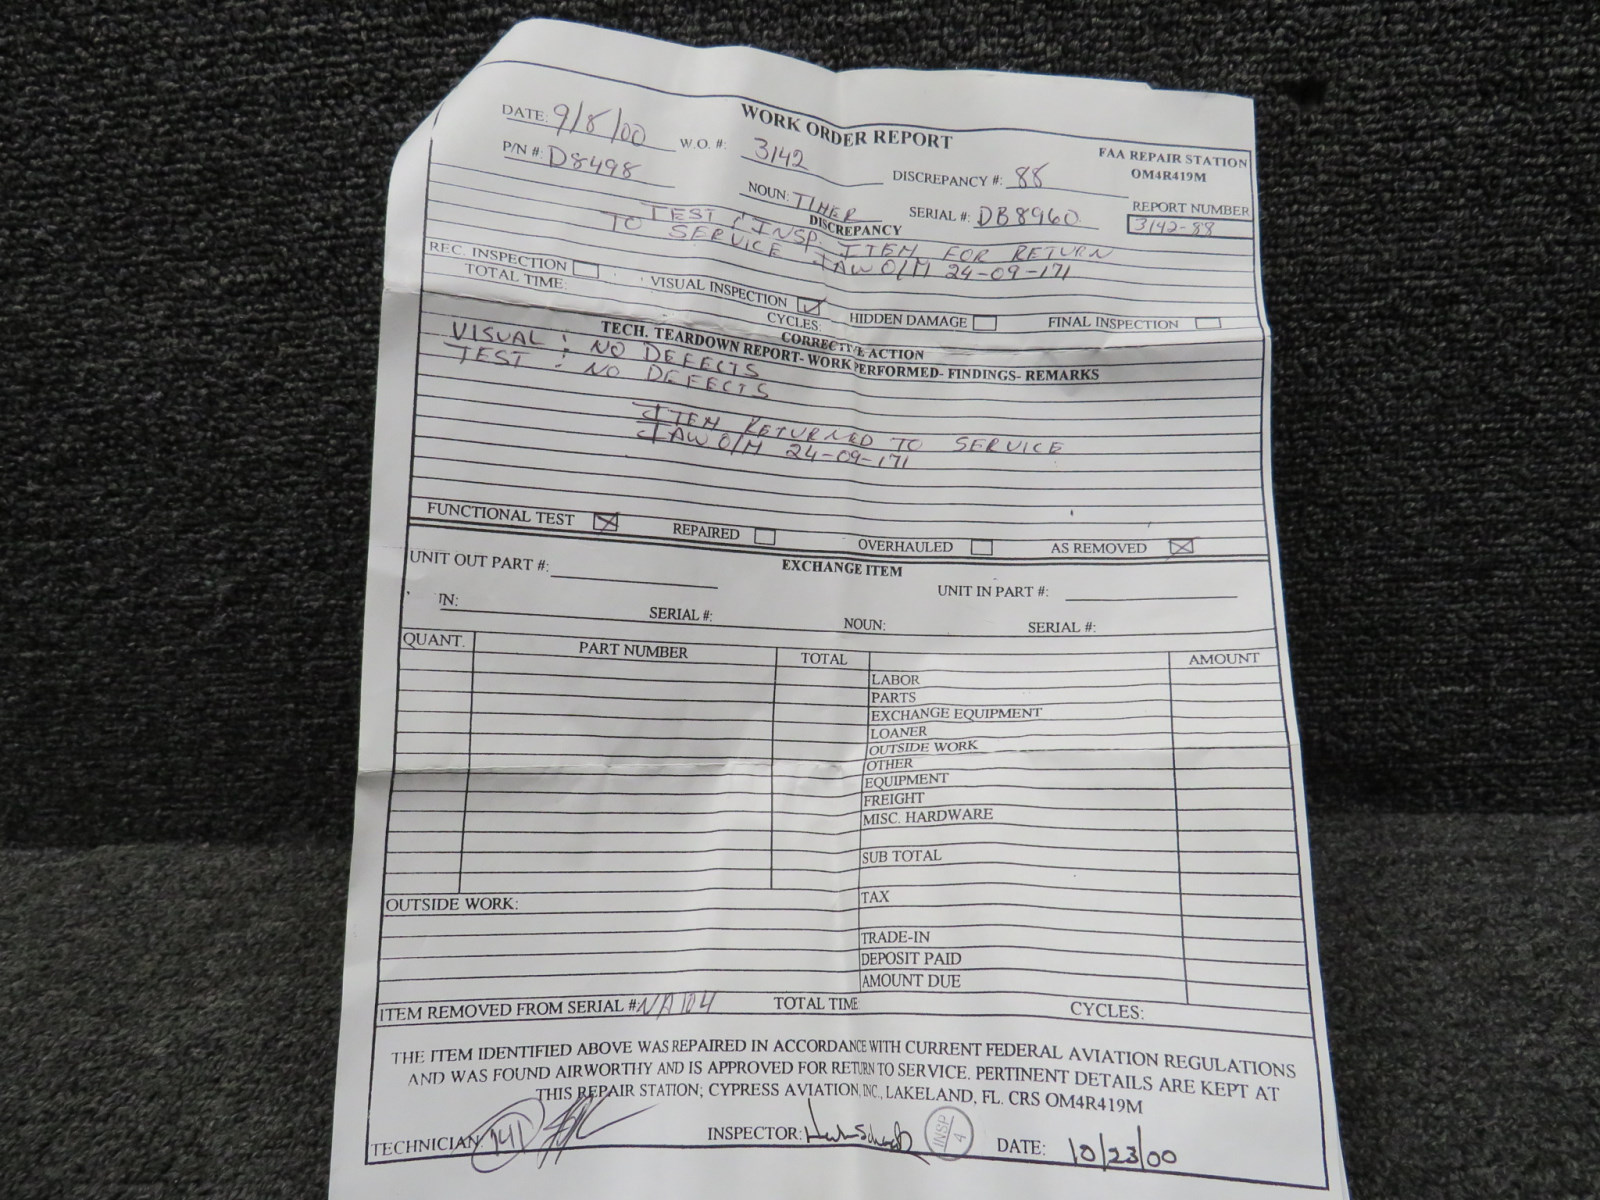 WORK ORDER REPORT
DATE: 9/8/00 W.O. #: 3142 DISCREPANCY #: 88 FAA REPAIR STATION
OM4R419M
P/N #: D8498 NOUN: TIMER SERIAL #: DB8960 REPORT NUMBER
3142-88
DISCREPANCY
TEST / INSP. ITEM FOR RETURN
TO SERVICE IAW O/M 24-09-171
REC. INSPECTION VISUAL INSPECTION HIDDEN DAMAGE FINAL INSPECTION
TOTAL TIME: CYCLES:
CORRECTIVE ACTION
TECH. TEARDOWN REPORT- WORK PERFORMED- FINDINGS- REMARKS
VISUAL : NO DEFECTS
TEST : NO DEFECTS
ITEM RETURNED TO SERVICE
IAW O/M 24-09-171
FUNCTIONAL TEST REPAIRED OVERHAULED AS REMOVED
EXCHANGE ITEM
UNIT OUT PART #: UNIT IN PART #:
IN: SERIAL #: NOUN: SERIAL #:
QUANT. PART NUMBER TOTAL AMOUNT
LABOR
PARTS
EXCHANGE EQUIPMENT
LOANER
OUTSIDE WORK
OTHER
EQUIPMENT
FREIGHT
MISC. HARDWARE
SUB TOTAL
TAX
OUTSIDE WORK:
TRADE-IN
DEPOSIT PAID
AMOUNT DUE
ITEM REMOVED FROM SERIAL # NA104 TOTAL TIME CYCLES:
THE ITEM IDENTIFIED ABOVE WAS REPAIRED IN ACCORDANCE WITH CURRENT FEDERAL AVIATION REGULATIONS
AND WAS FOUND AIRWORTHY AND IS APPROVED FOR RETURN TO SERVICE. PERTINENT DETAILS ARE KEPT AT
THIS REPAIR STATION; CYPRESS AVIATION, INC., LAKELAND, FL. CRS OM4R419M
TECHNICIAN: 141 INSPECTOR: INSP 4 DATE: 10/23/00